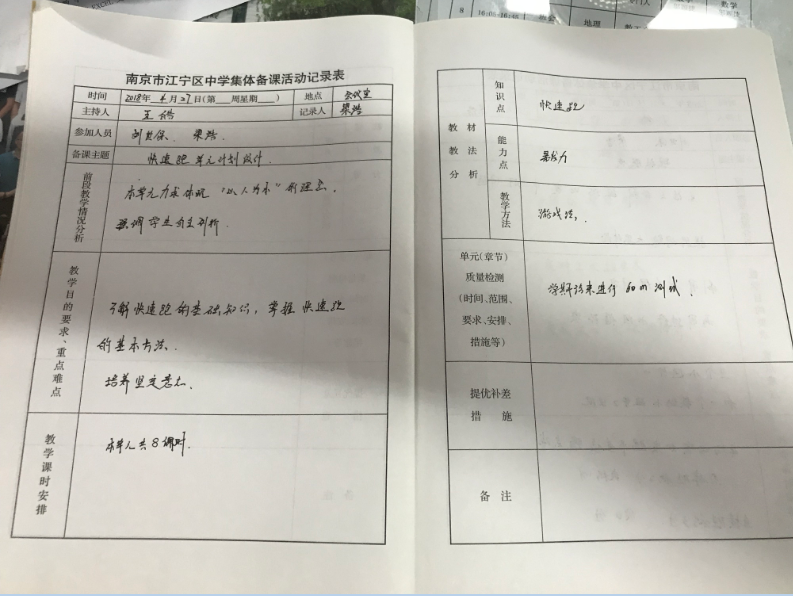 南京市江宁区中学集体备课活动记录表
时间 2018年 4月27日(第 周星期 ) 地点 会议室
主持人 王皓 记录人 梁浩
参加人员 梁浩
备课主题 快速跑单元计划设计
前段教学情况分析
本单元力求体现“以人为本”的理念.
强调学生自主剖析
教学目的要求、重点难点
了解快速跑的基础知识，掌握快速跑
的基本方法.
培养坚定意志.
教学课时安排
本单人共8课时.
教材教法分析
知识点 快速跑
能力点 暴发力
教学方法 游戏法.
单元(章节)
质量检测
(时间、范围、
要求、安排、
措施等)
学期结束进行 60m 测试.
提优补差
措施
备注
16:05-16:45
地理
数学